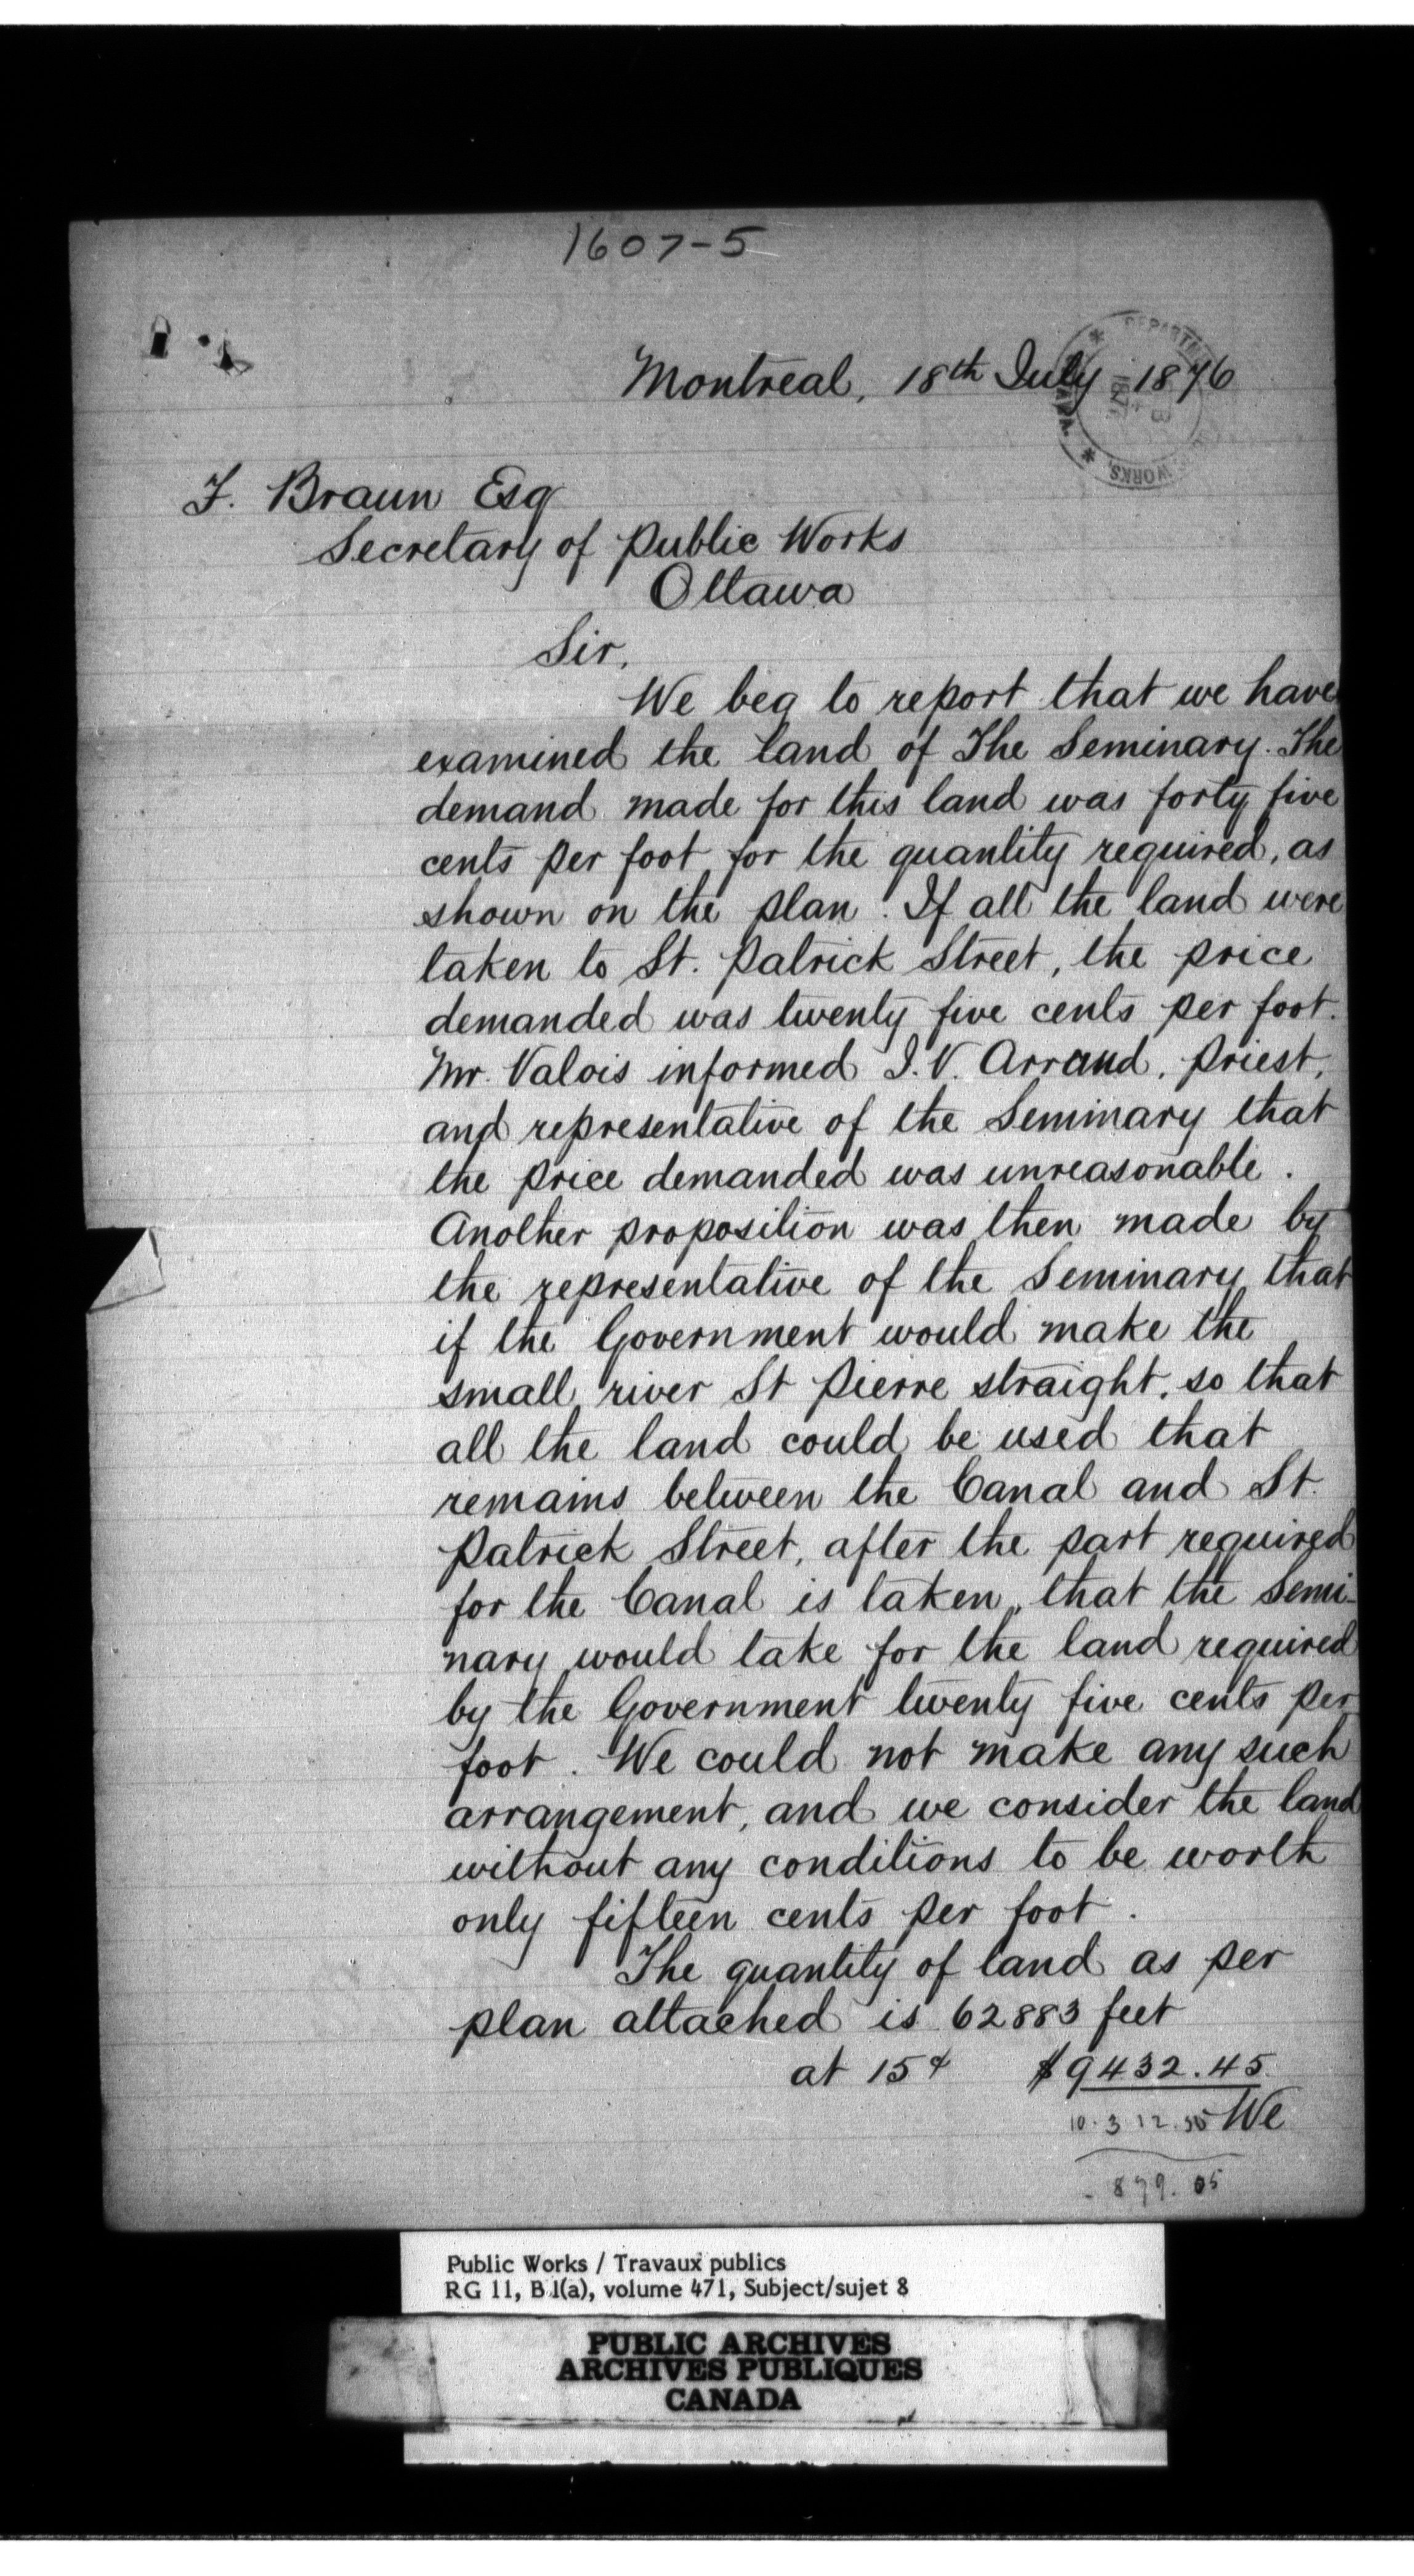 1607-5
Montreal, 18th July 1876
DEPARTM
WORKS.
F. Braun Esq
Secretary of Public Works
Ottawa
Sir,
We beg to report that we have
examined the land of The Seminary. The
demand made for this land was forty five
cents per foot for the quantity required, as
shown on the plan. If all the land were
taken to St. Patrick Street, the price
demanded was twenty five cents per foot.
Mr. Valois informed J. V. Arraud, Priest,
and representative of the Seminary that
the price demanded was unreasonable.
Another proposition was then made by
the representative of the Seminary that
if the Government would make the
small river St Pierre straight, so that
all the land could be used that
remains between the Canal and St.
Patrick Street, after the part required
for the Canal is taken, that the Semi-
nary would take for the land required
by the Government twenty five cents per
foot. We could not make any such
arrangement, and we consider the land
without any conditions to be worth
only fifteen cents per foot.
The quantity of land as per
plan attached is 62883 feet
at 15¢ $9432.45
10.312.50 We
879.05
Public Works / Travaux publics
RG 11, B 1(a), volume 471, Subject/sujet 8
PUBLIC ARCHIVES
ARCHIVES PUBLIQUES
CANADA